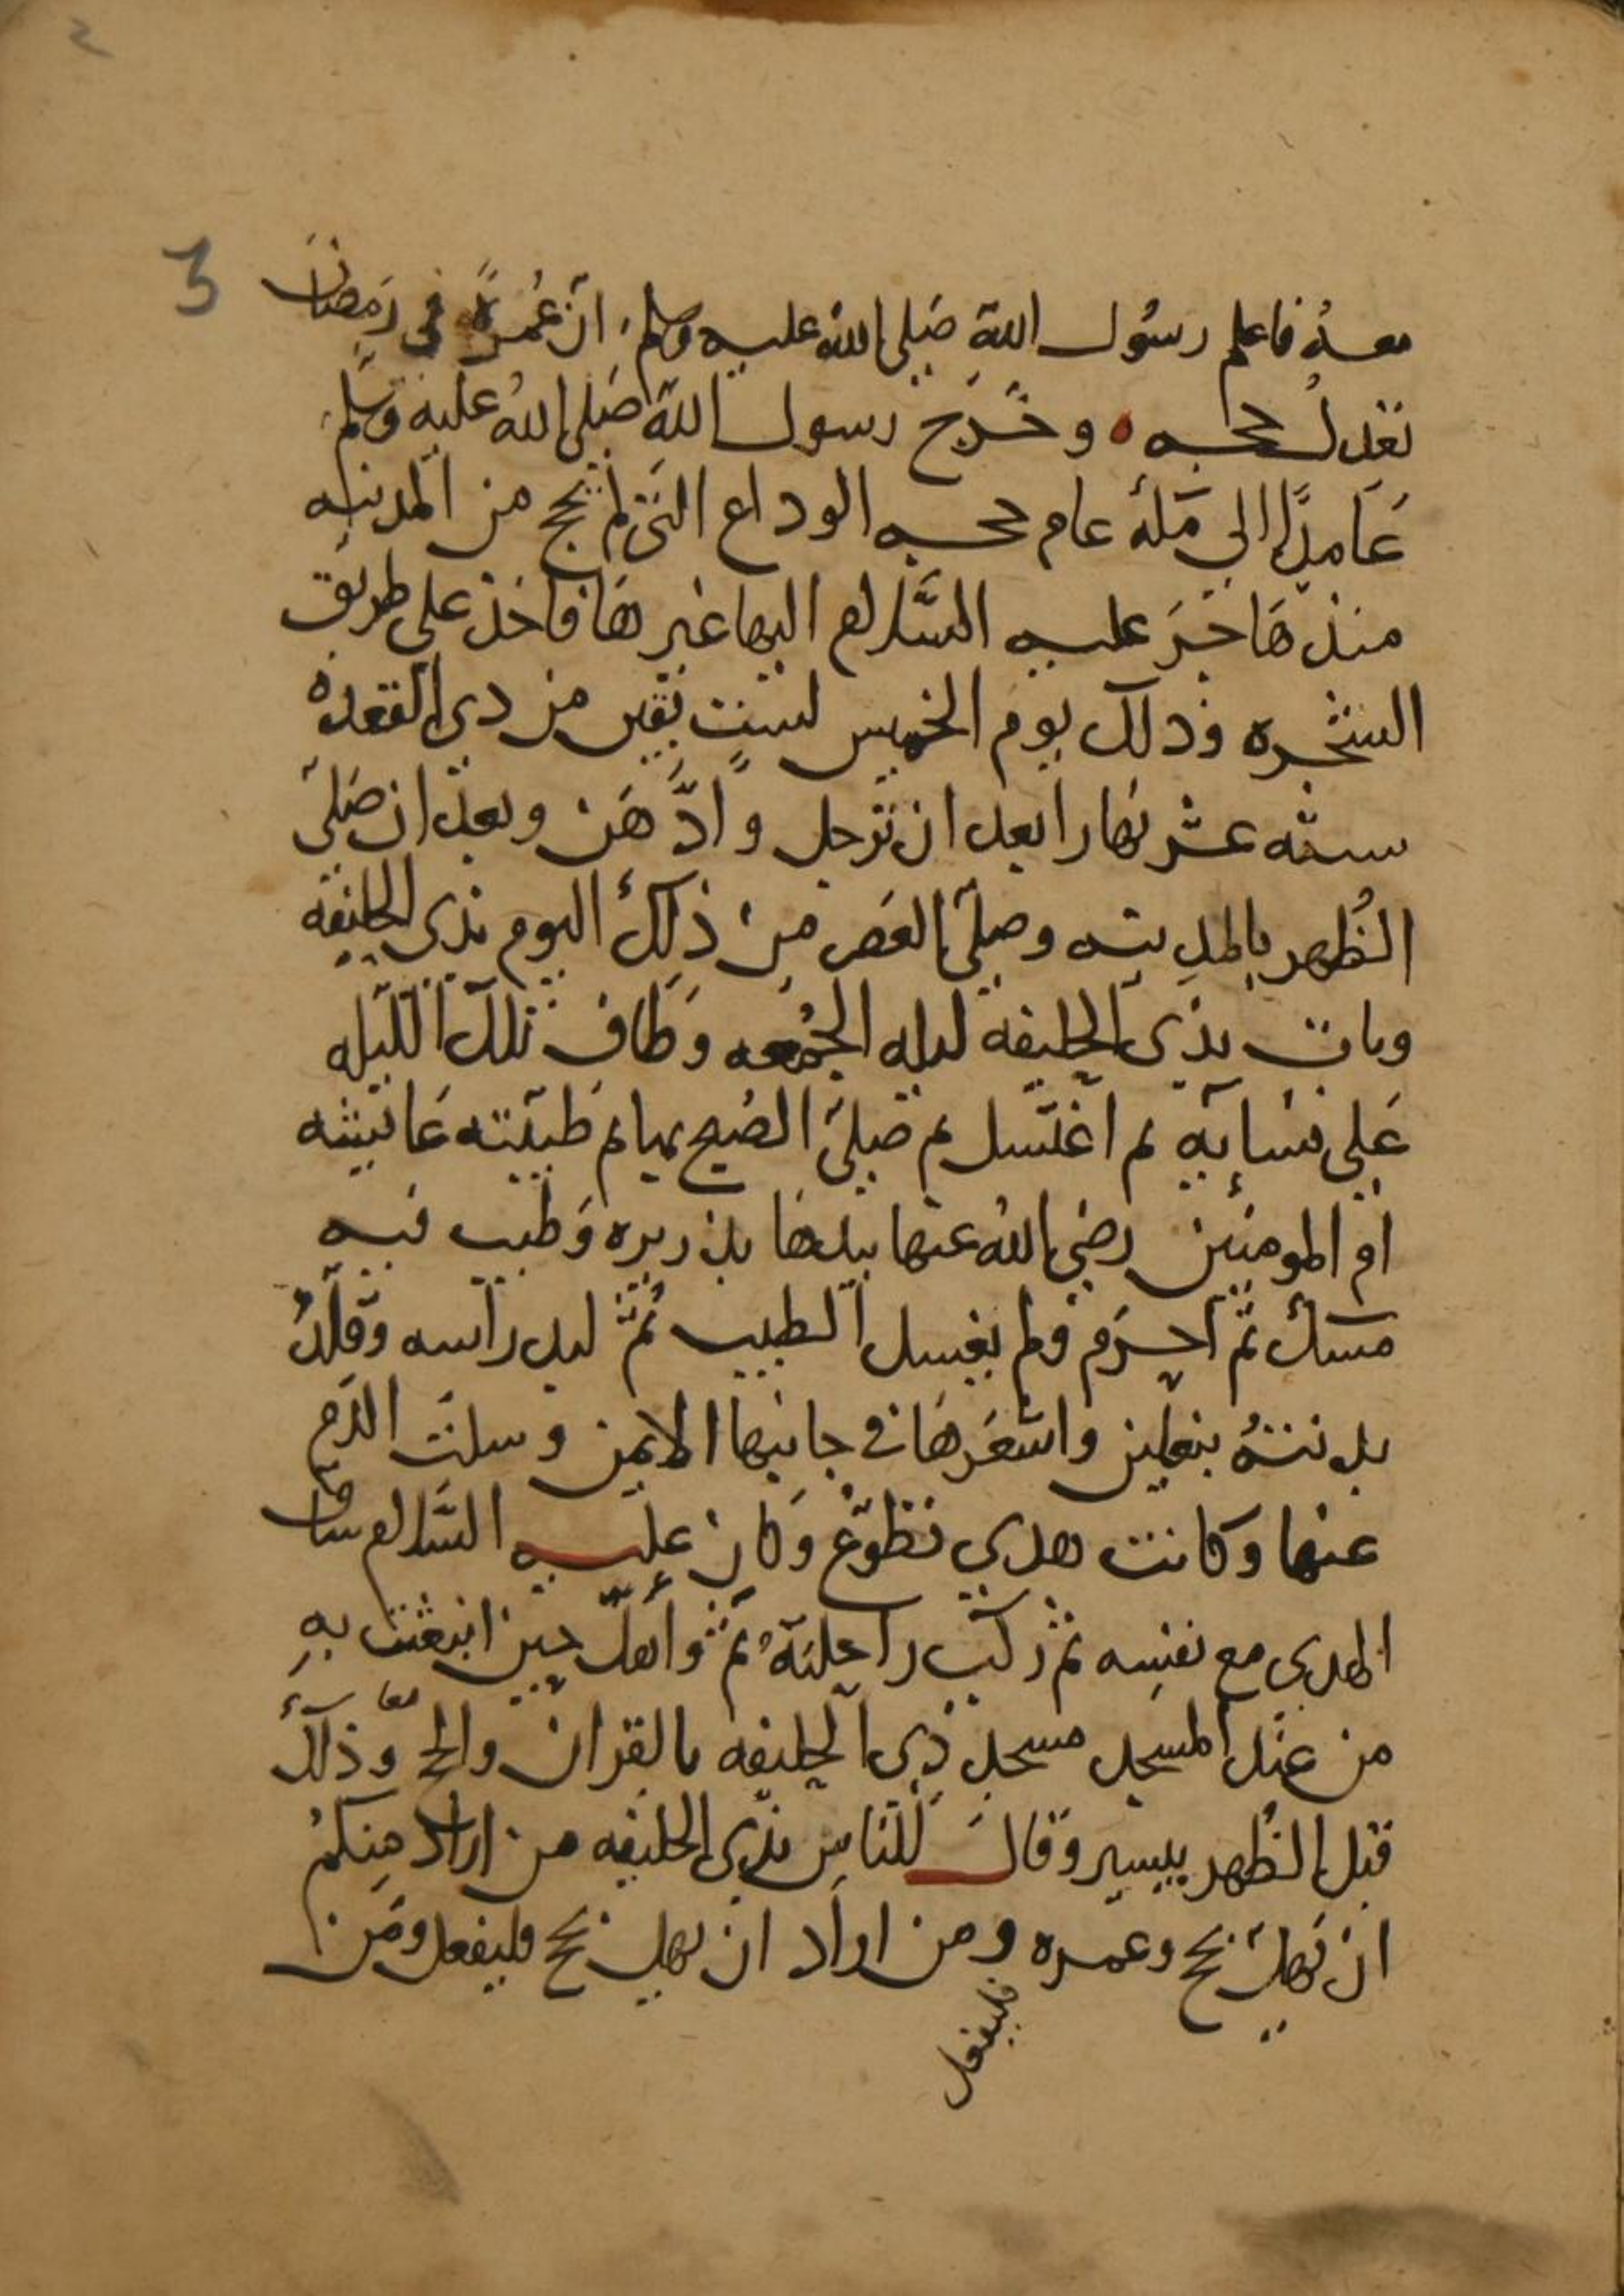 3
معه فاعلم رسول الله صلى الله عليه وسلم ان عمرة في رمضان
تعدل حجه وخرج رسول الله صلى الله عليه وسلم
عامدا الي مكة عام حجه الوداع التي لم يحج من المدينه
منذ هاجر عليه السلام اليها غيرها فاخذ على طريق
الشجره وذلك يوم الخميس لست بقين من ذي القعده
سنه عشر نهارا بعد ان ترجل وادهن وبعد ان صلى
الظهر بالمدينه وصلى العصر من ذلك اليوم بذي الحليفه
وبات بذي الحليفه ليله الجمعه وطاف تلك الليله
على نسايه ثم اغتسل ثم صلى الصبح بها ثم طيبته عايشه
ام المومنين رضي الله عنها بيدها بذريره وطيب فيه
مسك ثم احرم ولم يغسل الطيب ثم لبد راسه وقلد
بدنته بنعلين واشعرها في جانبها الايمن وسلت الدم
عنها وكانت هدي تطوع وكان عليه السلام ساق
الهدي مع نفسه ثم ركب راحلته ثم واهل حين انبعثت به
من عند المسجد مسجد ذي الحليفه بالقران والحج معا وذلك
قبل الظهر بيسير وقال للناس بذي الحليفه من اراد منكم
ان يهل بحج وعمره ومن اراد ان يهل بحج فليفعل ومن
فليفعل